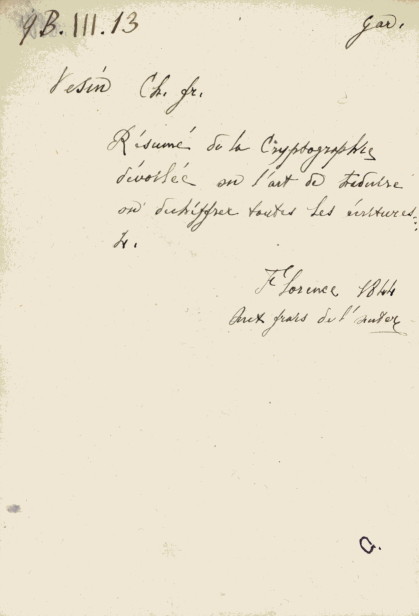 9 B. III. 13
gar.
Vesin Ch. fr.
Résumé de la Cryptographie
dévoilée ou l'art de traduire
ou déchiffrer toutes les écritures...
4.
Florence 1844
Aux frais de l'auteur
G.